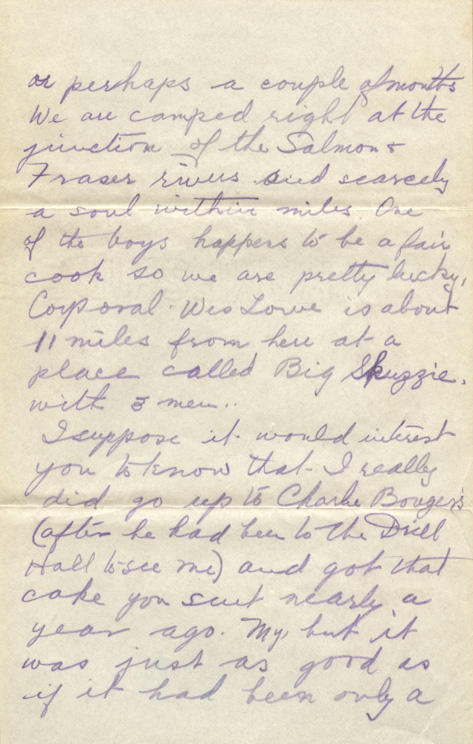 or perhaps a couple of months
We are camped right at the
junction of the Salmon &
Fraser rivers and scarcely
a soul within miles. One
of the boys happens to be a fair
cook so we are pretty lucky,
Corporal. Wes Lowe is about
11 miles from here at a
place called Big Skuzzie.
with 3 men..
I suppose it would interest
you to know that I really
did go up to Charlie Bouger's
(after he had been to the Drill
Hall to see me) and got that
cake you sent nearly a
year ago. My, but it
was just as good as
if it had been only a